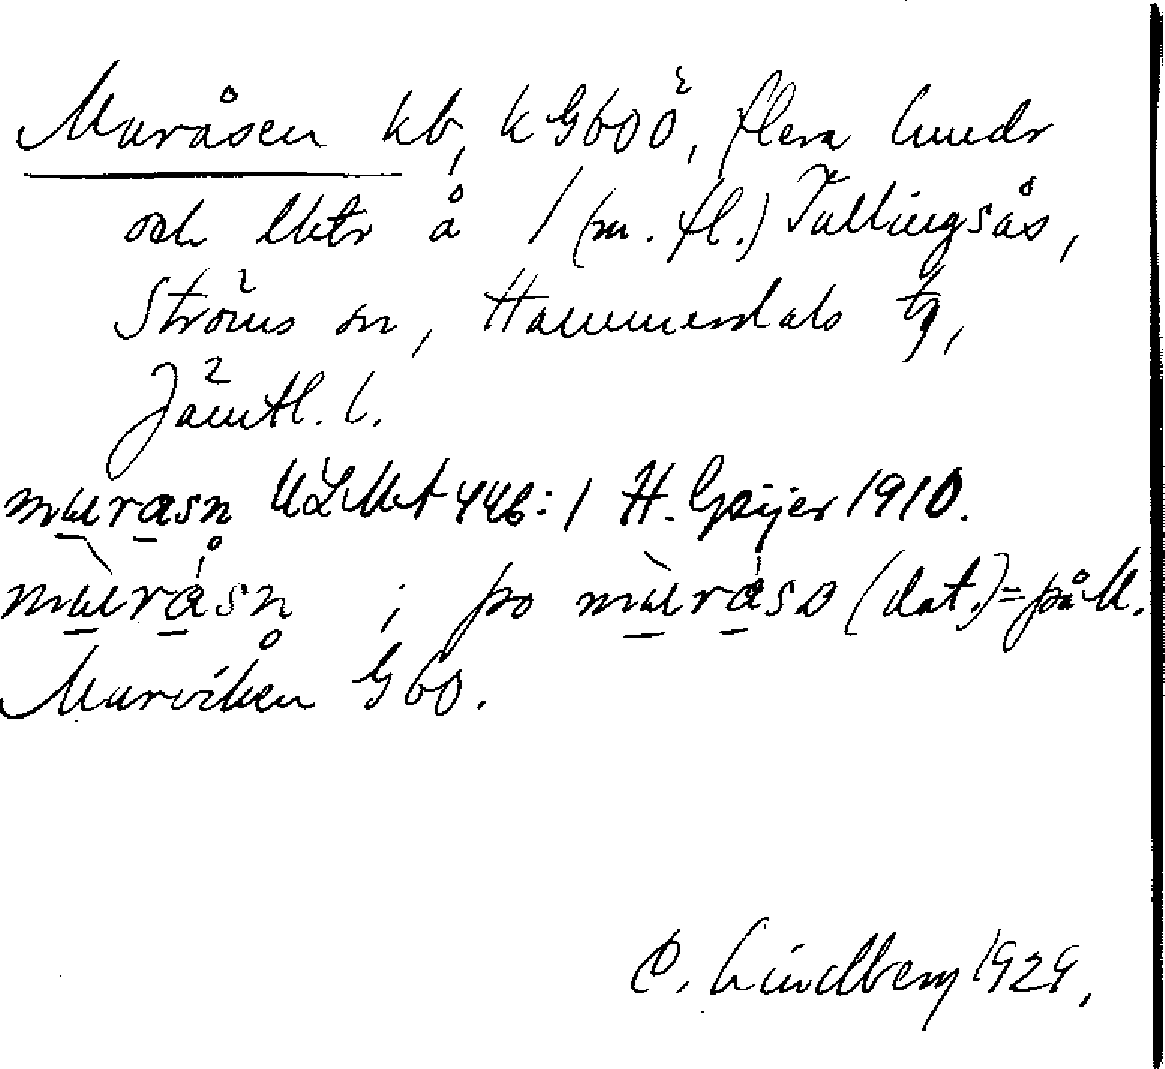 Muråsen kb, k Gbo Ö, flera hmdr
och lktr å 1 (m. fl.) Tullingsås,
Ströms sn, Hammerdals tg,
Jämtl. l.
mu̲ra̲sn ULMA 446:1 H. Geijer 1910.
mù̲rå̲sn ; po mù̲rá̲sə (dat.) = på M.
Murviken Gbo.
C. Lindberg 1929.